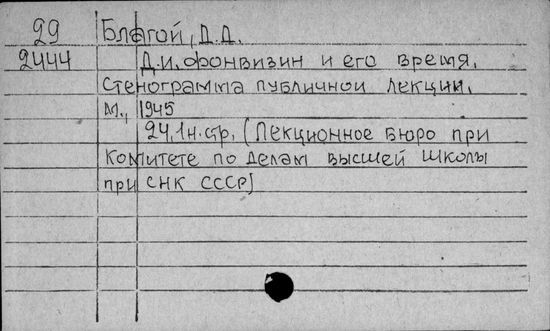 29 Благой, Д.Д.
2444 Д.И. Фонвизин и его время.
Стенограмма публичной лекции.
М., 1945
24, 1н. стр. (Лекционное бюро при
Комитете по делам высшей школы
при СНК СССР)